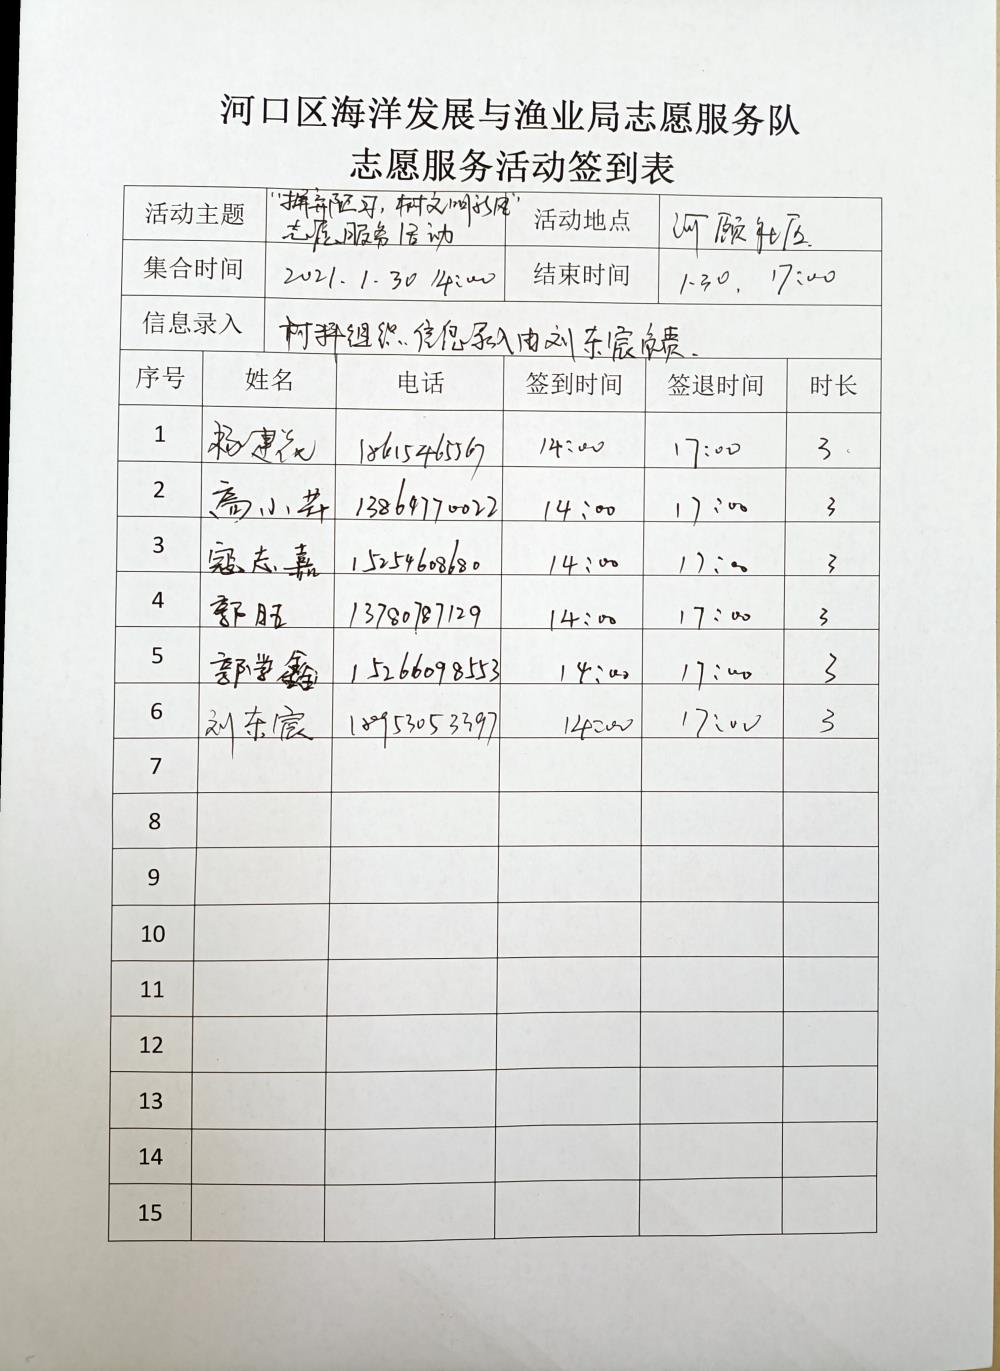 河口区海洋发展与渔业局志愿服务队
志愿服务活动签到表
活动主题 "摒弃陋习，树文明新风" 志愿服务活动 活动地点 河颐社区
集合时间 2021.1.30 14:00 结束时间 1.30. 17:00
信息录入 组织.信息录入由刘东宸负责.
序号 姓名 电话 签到时间 签退时间 时长
1 杨建 18615465567 14:00 17:00 3
2 高小 13869770022 14:00 17:00 3
3 寇志嘉 15254608680 14:00 17:00 3
4 郭旺 13780787129 14:00 17:00 3
5 郭学鑫 15266098553 14:00 17:00 3
6 刘东宸 18953053397 14:00 17:00 3
7
8
9
10
11
12
13
14
15